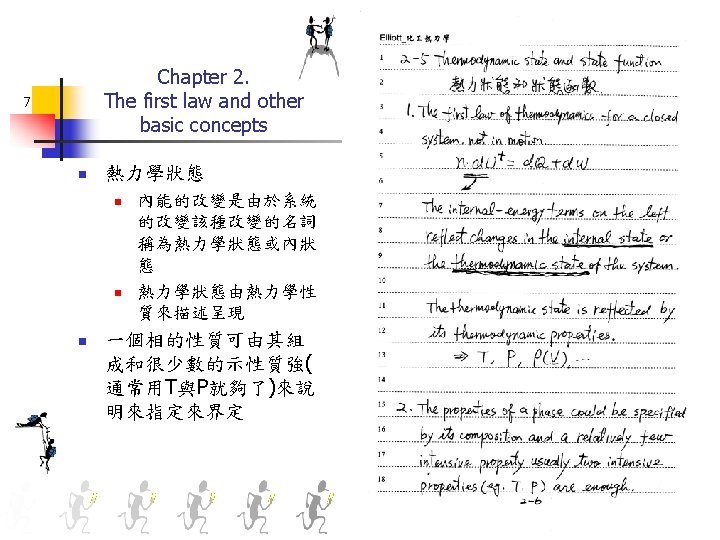 7
Chapter 2.
The first law and other
basic concepts
熱力學狀態
內能的改變是由於系統
的改變該種改變的名詞
稱為熱力學狀態或內狀
態
熱力學狀態由熱力學性
質來描述呈現
一個相的性質可由其組
成和很少數的示性質強(
通常用T與P就夠了)來說
明來指定來界定
Elliott_化工熱力學
1 2-5 Thermodynamic state and state function
2 熱力狀態和狀態函數
3 1. The first law of thermodynamic for a closed
4 system, not in motion.
5 n·dU^t = dQ + dW
6
7 The internal-energy terms on the left
8 reflect changes in the internal state or
9 the thermodynamic state of the system.
10
11 The thermodynamic state is reflected by
12 its thermodynamic properties.
13 ⇒ T, P, ρ(V), ...
14
15 2. The properties of a phase could be specified
16 by its composition and a relatively few
17 intensive property usually two intensive
18 properties (eg. T. P) are enough.
2-6